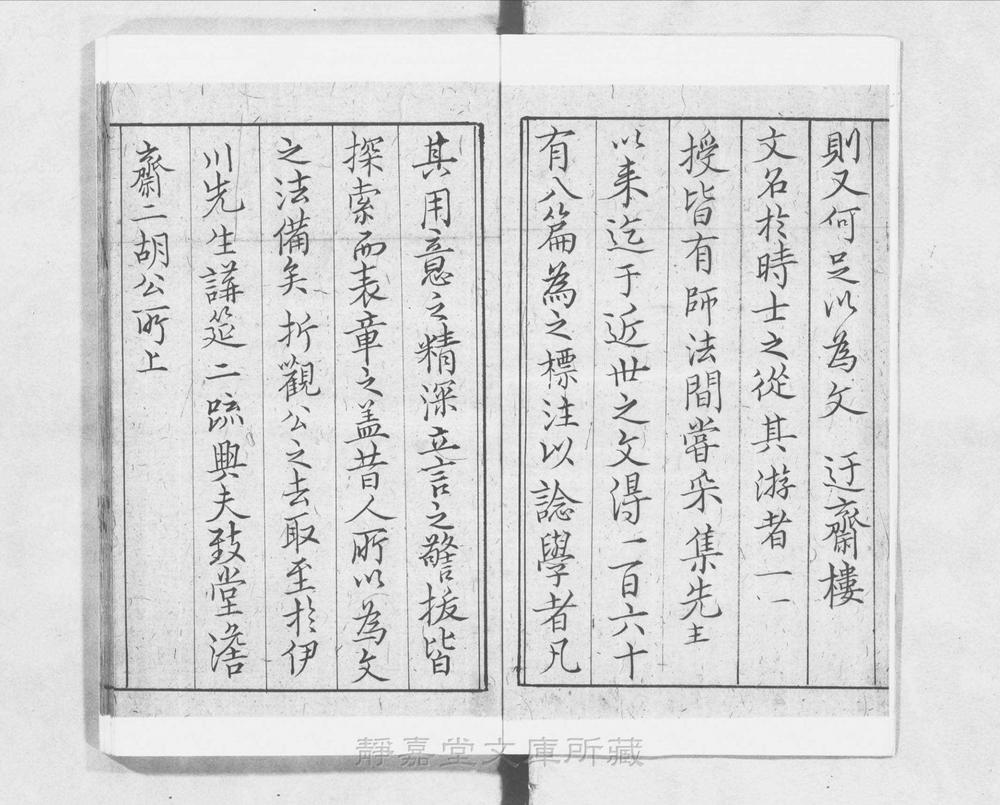 則又何足以為文　迂齋樓
文名於時士之從其游者一一
授皆有師法間嘗采集先主
以来迄于近世之文得一百六十
有八篇為之標注以諗學者凡
其用意之精深立言之警拔皆
探索而表章之盖昔人所以為文
之法備矣折觀公之去取至於伊
川先生講筵二䟽與夫致堂澹
齋二胡公所上
靜嘉堂文庫所藏